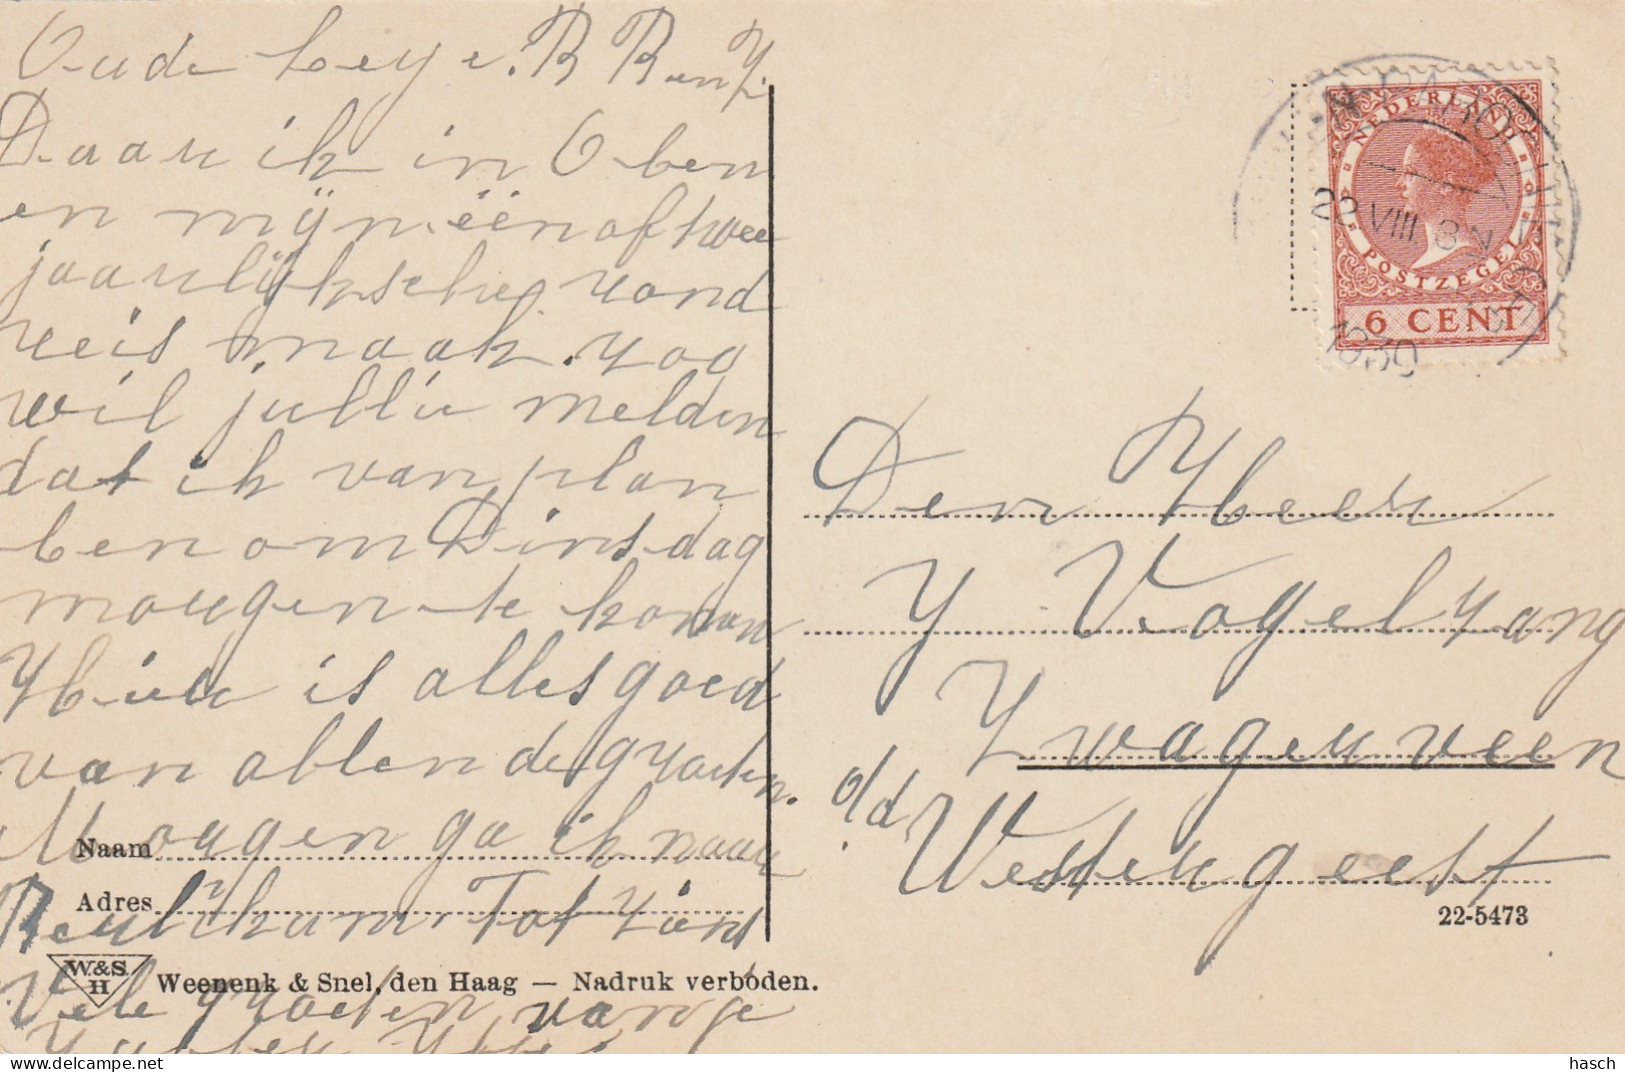 Oude Leije
Daar ik in Oben
en mijn één of twee
jaarlijksche rond
reis maak zoo
wil jullie melden
dat ik van plan
ben om Dinsdag
morgen te komen
Hier is alles goed
van allen de groeten.
Morgen ga ik naar
Naam
Adres
Tot ziens
W.&S.
H
Weenenk & Snel, den Haag — Nadruk verboden.
Vele groeten van je
NEDERLAND
POSTZEGEL
6 CENT
22 VIII 3 N
1930
Den Heer
Y Vogelzang
Zwagerveen
o/d Westergeest
22-5473
hasch